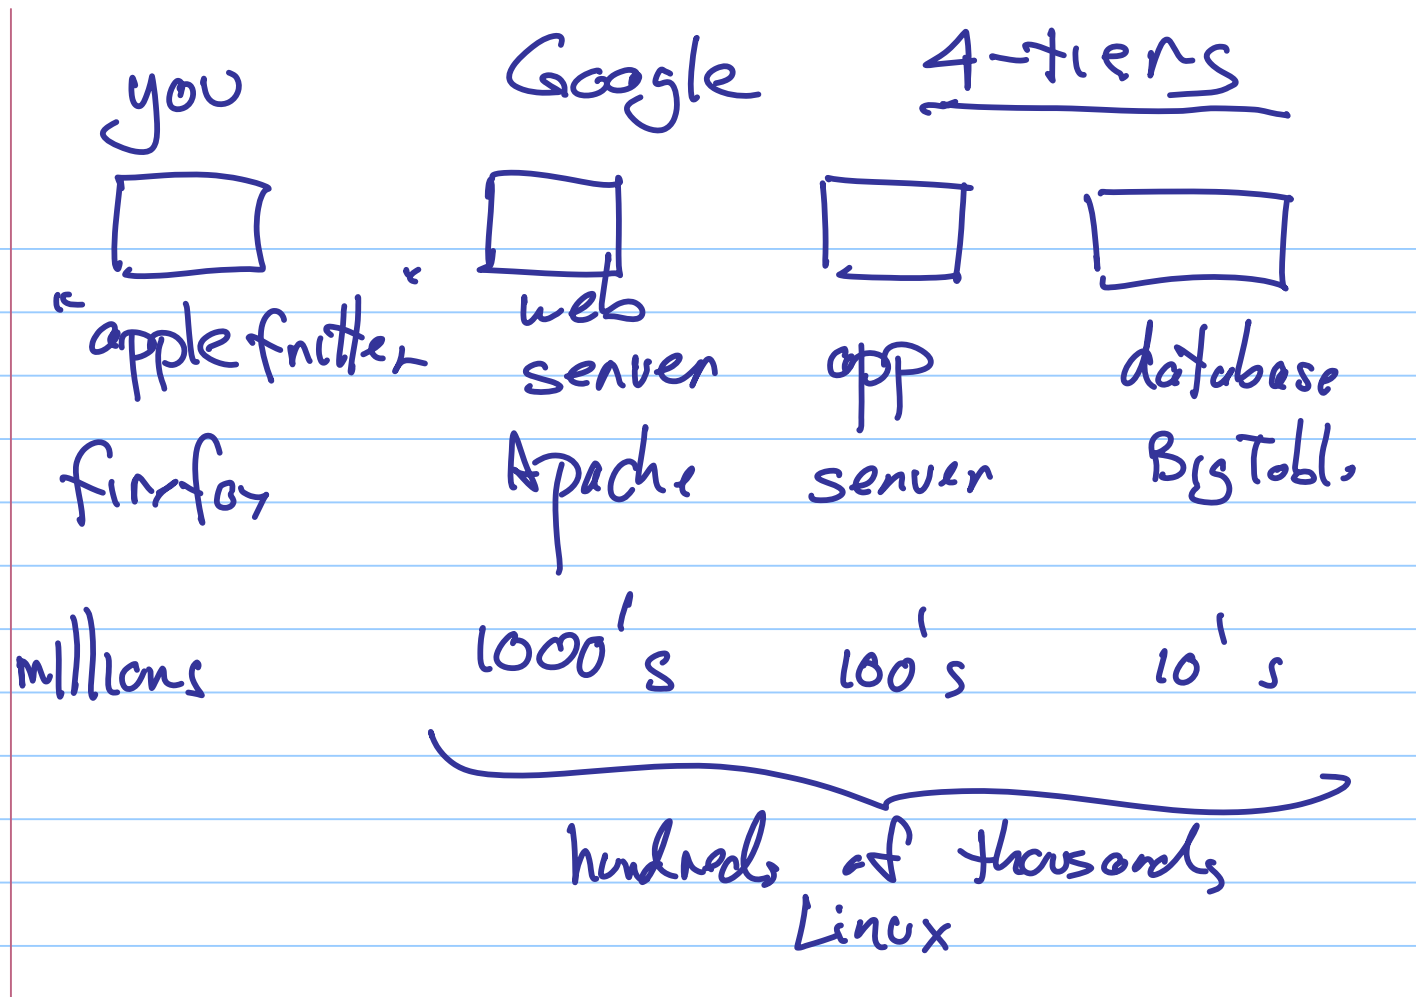 you Google 4-tiers
"apple fritter" web server app server database
firefox Apache BigTable
millions 1000's 100's 10's
hundreds of thousands
Linux